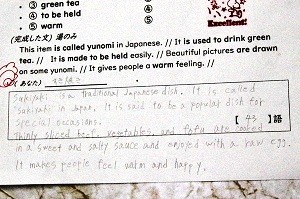 ③ green tea ④
④ to be held ④
⑤ warm ⑤
Excellent!
(完成した文) 湯のみ
This item is called yunomi in Japanese. // It is used to drink green
tea. // It is made to be held easily. // Beautiful pictures are drawn
on some yunomi. // It gives people a warm feeling. //
(あなた) すき焼き
Sukiyaki is a traditional Japanese dish. It is called
"sukiyaki" in Japan. It is said to be a popular dish for
special occasions.
【 43 】語
Thinly sliced beef, vegetables, and tofu are cooked
in a sweet and salty sauce and enjoyed with a raw egg.
It makes people feel warm and happy.